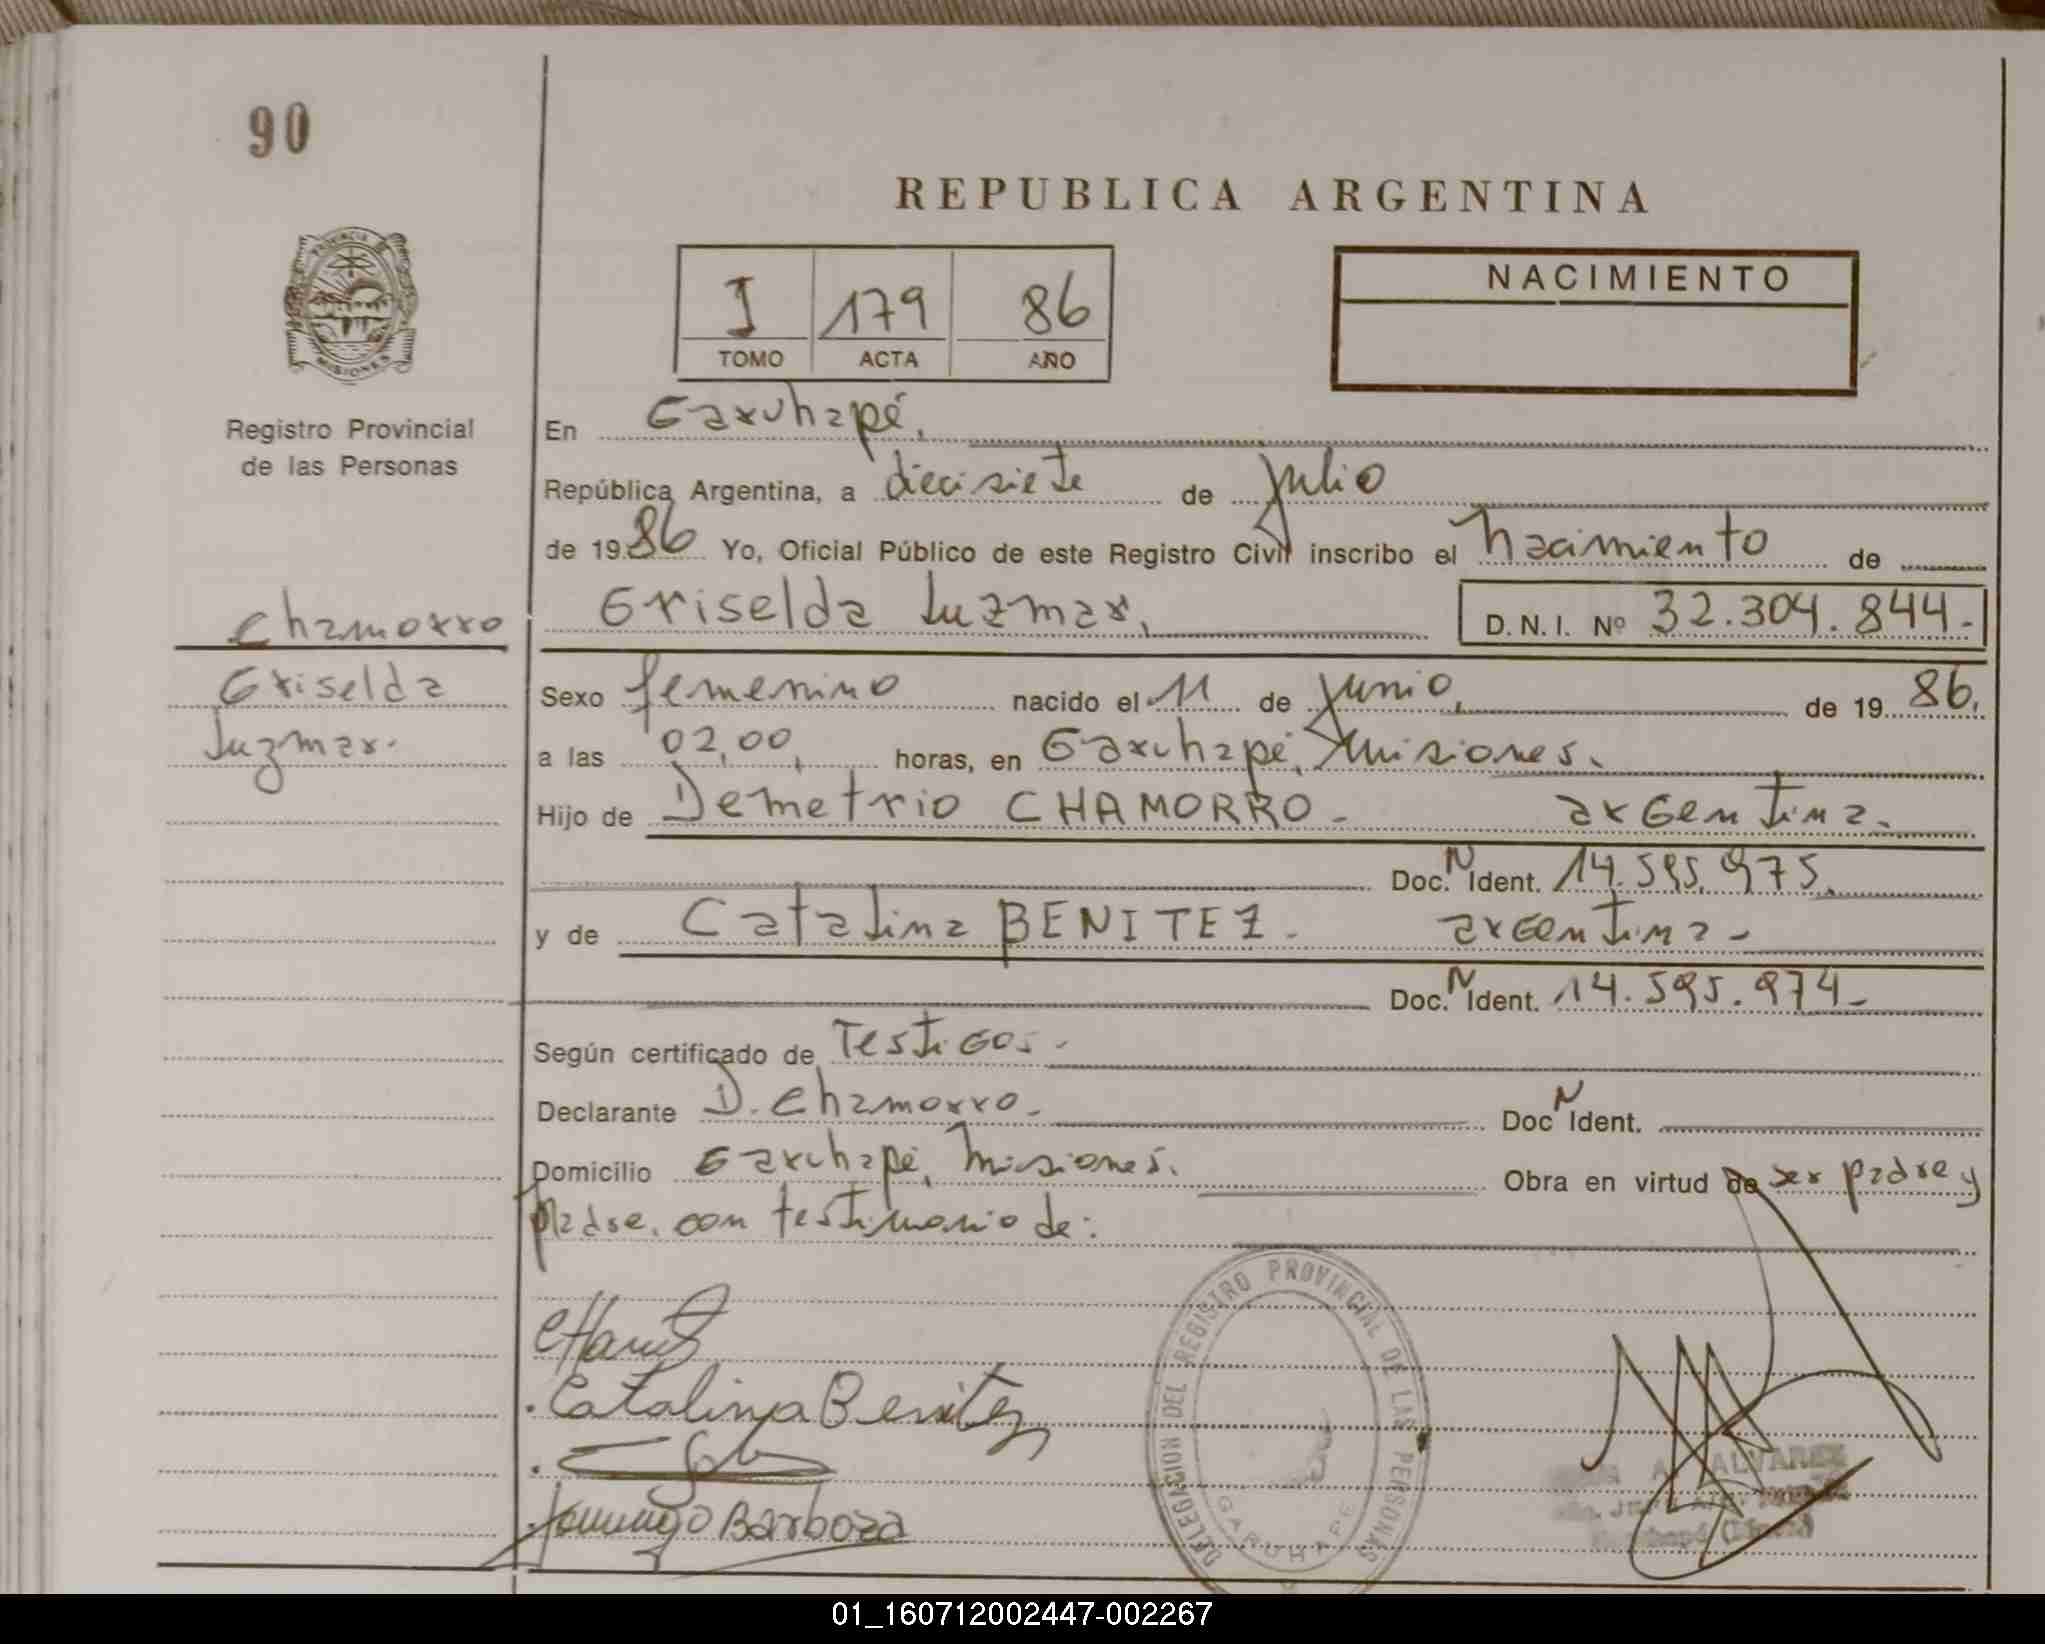 90
REPUBLICA ARGENTINA
I 179 86
TOMO ACTA AÑO
NACIMIENTO
PROVINCIA DE
MISIONES
Registro Provincial
de las Personas
En Garuhapé,
República Argentina, a diecisiete de Julio
de 1986 Yo, Oficial Público de este Registro Civil inscribo el nacimiento de
Chamorro
Griselda Luzmar,
D.N.I. Nº 32.304.844.-
Griselda
Luzmar.
Sexo femenino nacido el 11 de Junio, de 1986,
a las 02,00, horas, en Garuhapé, Misiones.
Hijo de Demetrio CHAMORRO - argentina.
Doc. N Ident. 14.595.975.
y de Catalina BENITEZ - argentina -
Doc. N Ident. 14.595.974-
Según certificado de Testigos -
Declarante D. Chamorro - Doc N Ident.
Domicilio Garuhapé, Misiones. Obra en virtud de ser padre y
Madre, con testimonio de:
Catalina Benitez
Domingo Barboza
DELEGACION DEL REGISTRO PROVINCIAL DE LAS PERSONAS
GARUHAPE
A. ALVAREZ
01_160712002447-002267